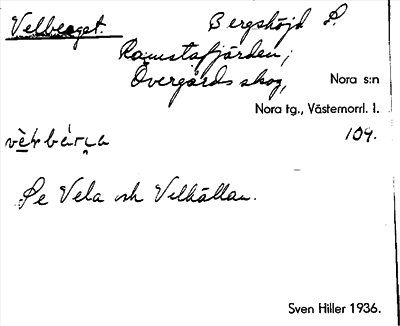 Velberget. Bergshöjd S.
Ramstafjärden;
Övergårds skog, Nora s:n
Nora tg., Västernorrl. l.
104.
Se Vela och Velkällan.
Sven Hiller 1936.